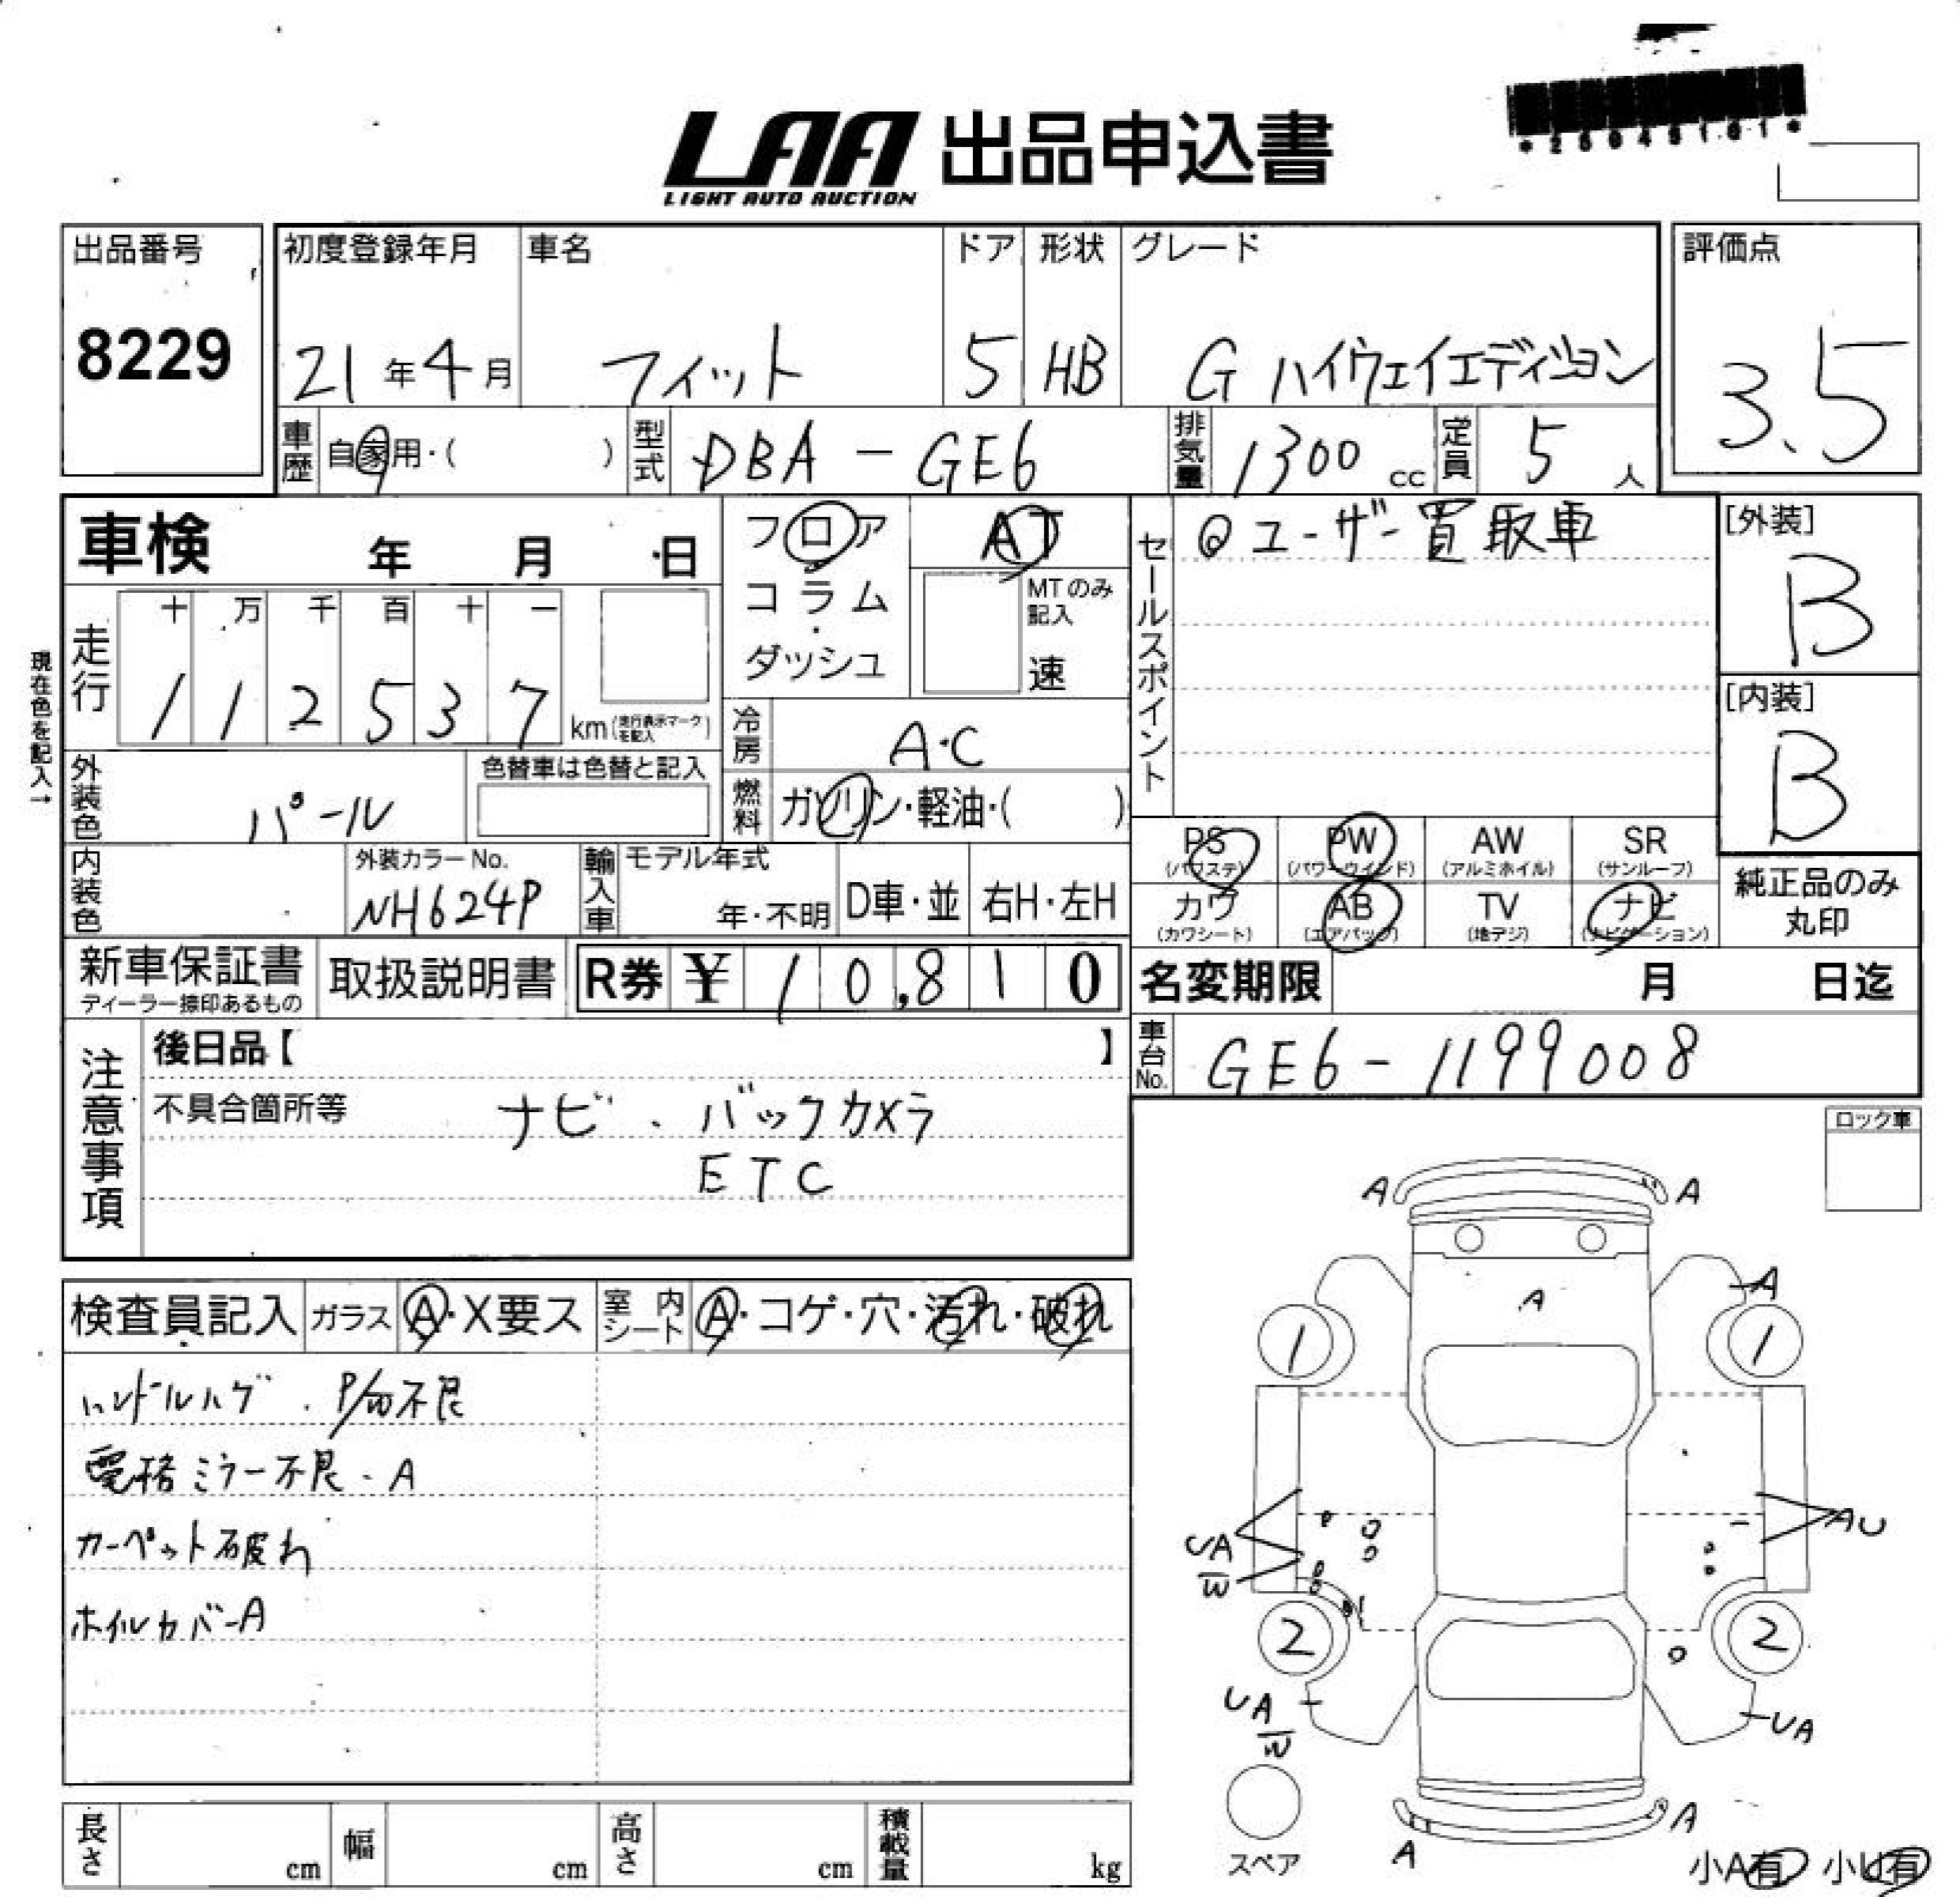 LAA 出品申込書
LIGHT AUTO AUCTION
出品番号
8229
初度登録年月
21年4月
車名
フィット
ドア
5
形状
HB
グレード
G ハイウェイエディション
評価点
3.5
車歴
自家用・( )
型式
DBA-GE6
排気量
1300 cc
定員
5 人
車検 年 月 日
走行
十 万 千 百 十 一
1 1 2 5 3 7
km(走行表示マークを記入)
現在色を記入→
フロア
コラム
・
ダッシュ
AT
MTのみ
記入
速
冷房
A・C
燃料
ガソリン・軽油・( )
外装色
パール
色替車は色替と記入
内装色
外装カラーNo.
NH624P
輸入車
モデル年式
年・不明
D車・並
右H・左H
セールスポイント
◎ユーザー買取車
[外装]
B
[内装]
B
PS
(パワステ)
PW
(パワーウインド)
AW
(アルミホイル)
SR
(サンルーフ)
カワ
(カワシート)
AB
(エアバック)
TV
(地デジ)
ナビ
(ナビゲーション)
純正品のみ
丸印
新車保証書
ディーラー捺印あるもの
取扱説明書
R券 ¥ 10,810
名変期限 月 日迄
車台No.
GE6-1199008
注意事項
後日品【 】
不具合箇所等
ナビ・バックカメラ
ETC
ロック車
検査員記入
ガラス
A・X要ス
室内シート
A・コゲ・穴・汚れ・破れ
ハンドルハゲ・P/W不良
電格ミラー不良・A
カーペット破れ
ホイルカバーA
A A
A A
1 1
UA AU
W
2 2
UA UA
W
スペア
A A
小A有 小U有
長さ cm
幅 cm
高さ cm
積載量 kg